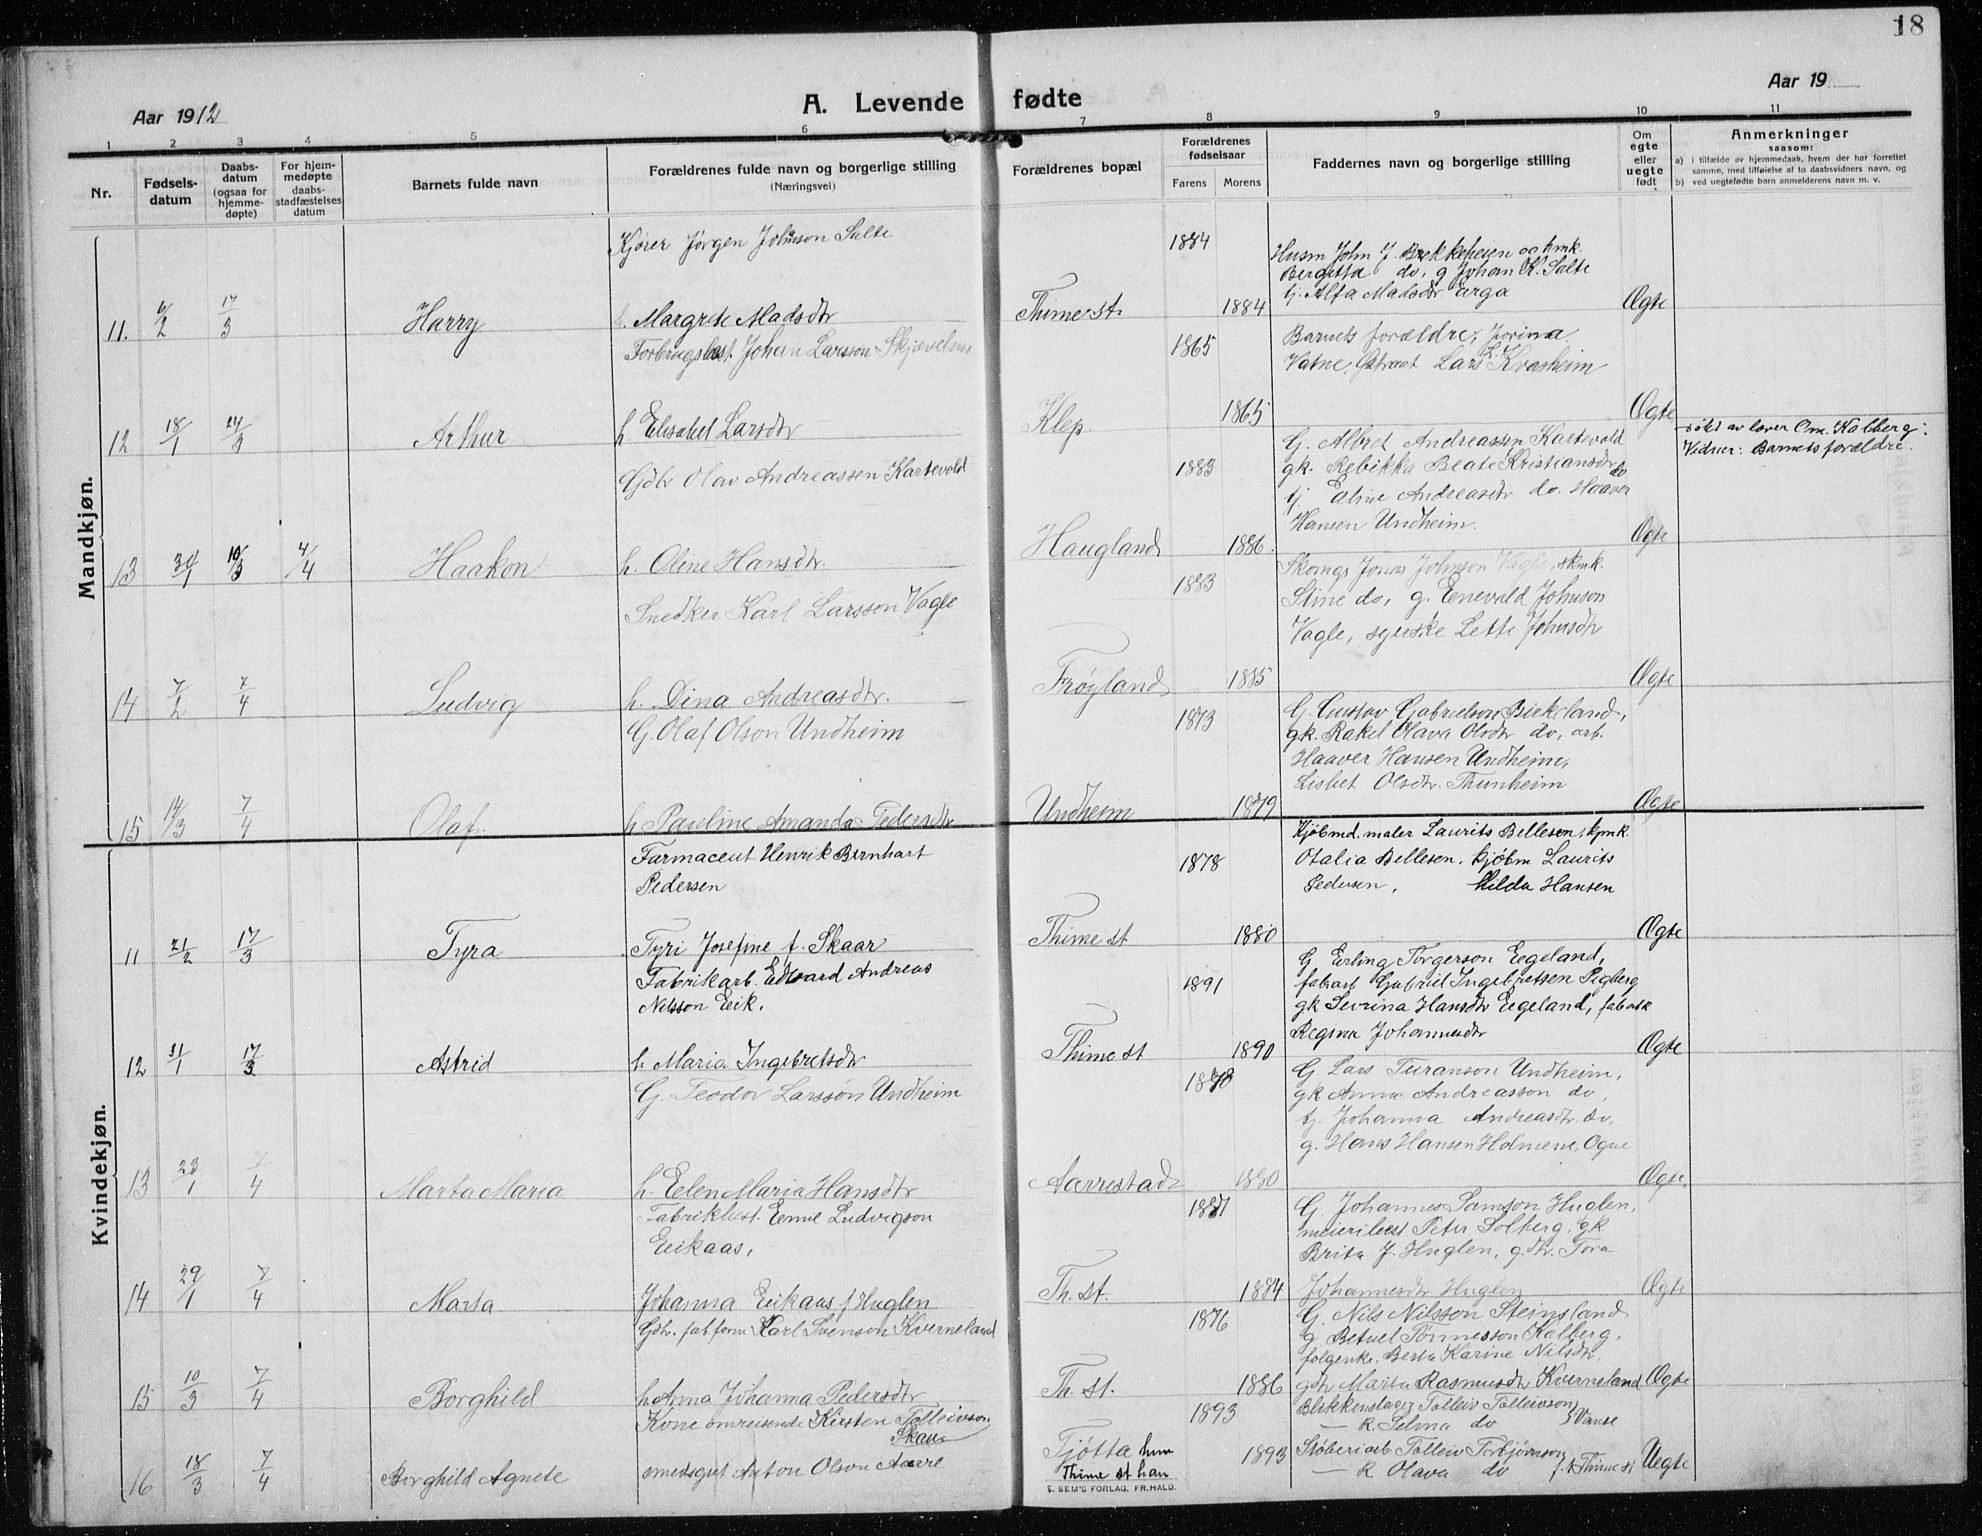 18
Aar 1912
A. Levende fødte
Aar 19
1 2 3 4 5 6 7 8 9 10 11
Nr.
Fødsels-
datum
Daabs-
datum
(ogsaa for
hjemme-
døpte)
For hjem-
medøpte
daabs-
stadfæstelses
datum
Barnets fulde navn
Forældrenes fulde navn og borgerlige stilling
(Næringsvei)
Forældrenes bopæl
Forældrenes
fødselsaar
Farens Morens
Faddernes navn og borgerlige stilling
Om
egte
eller
uegte
født
Anmerkninger
saasom:
a) i tilfælde av hjemmedaab, hvem der har forrettet
samme, med tilføielse af to daabsvidners navn, og
b) ved uegtefødte barn anmelderens navn m. v.
Mandkjøn.
Kjører Jørgen Johnson Salte
1884
Husm John J. Brekkeheien og hmk.
Bergitta do, g Johan K. Salte
tj. Alfa Madsdtr Erga
11. 6/2 17/3 Harry h. Margrete Madsdtr Thime st. 1884 Ægte
Forbrugsbest. Johan Larsson Skjævelan
1865
Barnets forældre, Jorina
Vatne, Østraat Lars L. Kvasheim
12 18/1 24/3 Arthur h. Elisabet Larsdtr Klep 1865 Ægte
døbt av lærer Om. Kalberg.
Vidner: Barnets forældre.
Gdbr Olav Andreassen Kartevold
1883
G. Albret Andreassen Kartevold
gk. Rebikka Beate Kristiansdtr do
tj. Eline Andreasdtr do. Haaver
Hansen Undheim.
13 30/1 10/3 4/4 Haakon h. Oline Hansdtr. Haugland 1886. Ægte
Snedker Karl Larsson Vagle
1883
Skomg Jonas Johnson Vagle, skmk.
Stine do, g. Enevald Johnson
Vagle, syerske Lette Johnsdtr
14 7/2 7/4 Ludvig h. Dina Andreasdtr. Frøyland 1885 Ægte
G. Olaf Olson Undheim
1873
G. Gustav Gabrielson Birkeland,
gk. Rakel Olava Olsdtr do, arb.
Haaver Hansen Undheim,
Lisbet Olsdtr. Thunheim
15 14/3 7/4 Olaf. h Pauline Amanda Pedersdtr Undheim 1879 Ægte
Kvindekjøn.
Farmaceut Henrik Bernhart
Pedersen
1878
Kjøbmd. maler Laurits Bellesen, kpmk.
Otalia Bellesen. kjøbm Laurits
Pedersen, Hilda Hansen
11 21/2 17/3 Tyra Tyri Josefine f. Skaar Thime st 1880 Ægte
Fabrikarb. Edvard Andreas
Nilsson Eeik.
1891
G Erling Torgerson Eegeland,
fabrarb Gabriel Ingebretsen Pigberg
gk Sevrina Hansdtr Eegeland, fabrarb
Regina Johannesdtr
12 31/1 17/3 Astrid h Maria Ingebretsdtr Thime st 1890 Ægte
G. Teodor Larsson Undheim
1878
G. Lars Turanson Undheim,
gk Anna Andreasson do,
tj. Johanna Andreasdtr do,
g. Hans Hansen Holmene, Ogne
13 23/1 7/4 Marta Maria h. Eelen Maria Hansdtr Aarrestad 1880 Ægte.
Fabrikbest. Eemil Ludvigson
Eeikaas,
1881
G. Johannes Samson Huglen,
meieribest Peter Solberg, gk
Brita J. Huglen, g.dtr. Tora
Johannesdtr Huglen
14 29/1 7/4 Marta Johanna Eeikaas f Huglen Th. st. 1884 Ægte
Gdbr. fab.form Karl Svenson Kverneland
1876
G. Nils Nilsson Steinsland
g Betuel Tønnesson Kalberg.
folgenke. Berta Karine Nilsdtr,
gdtr Marta Rasmusdtr Kverneland
15 10/3 7/4 Borghild h Anna Johanna Pedersdtr Th. st. 1886 Ægte
Kone omreisende Kirsten Tolleivson
Skau
1893
Blikkenslager Tolleiv Tolleivson
— k. Selma do } Vanse
16 18/3 7/4 Borghild Agnete smedsgut Anton Olson Aavre
Tjøtta hun
Thime st han
1893
Støberiarb Tolleiv Torbjørnson
— k Olava do f. k Thime st
Uegte
E. SEM'S FORLAG. FR.HALD.